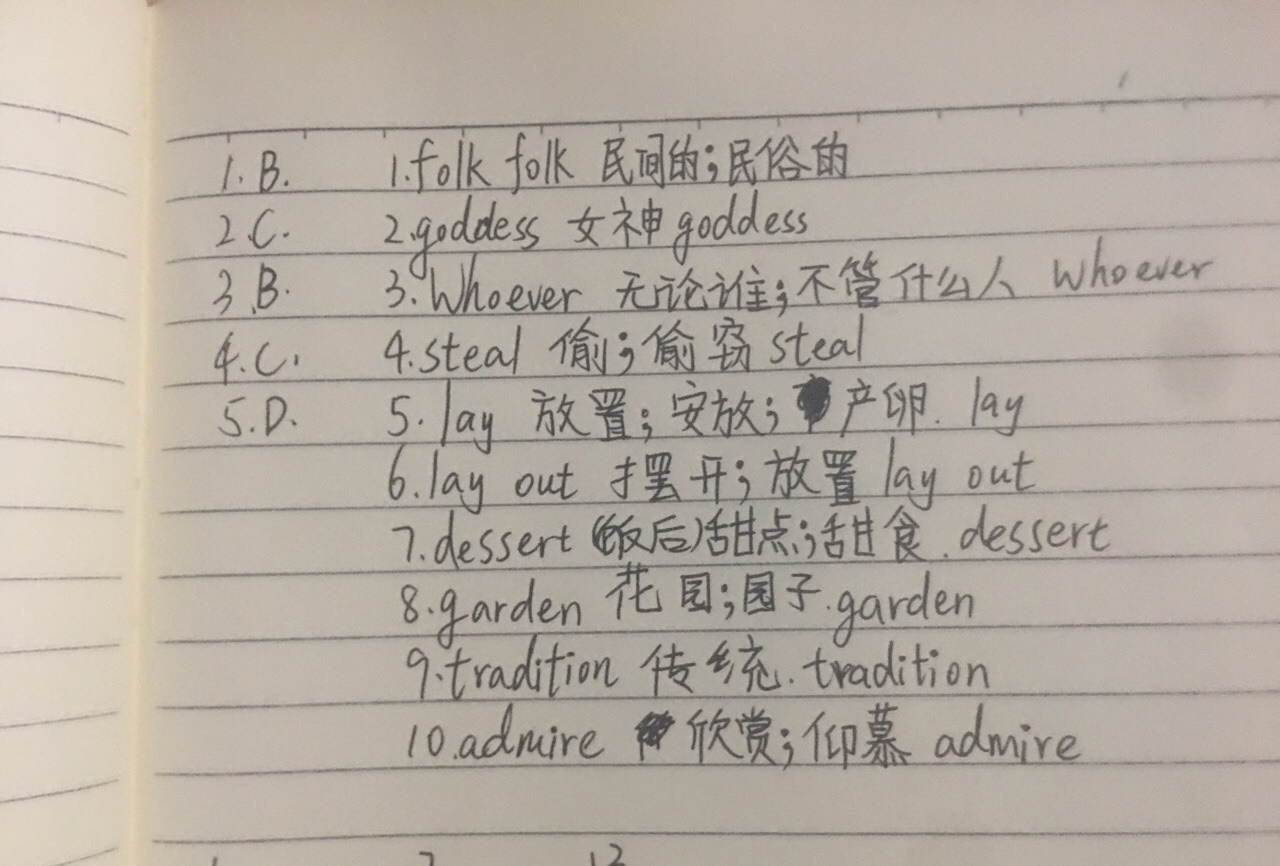 1. B. 1. folk folk 民间的;民俗的
2. C. 2. goddess 女神 goddess
3. B. 3. Whoever 无论谁;不管什么人 Whoever
4. C. 4. steal 偷;偷窃 steal
5. D. 5. lay 放置;安放;产卵. lay
6. lay out 摆开;放置 lay out
7. dessert (饭后)甜点;甜食. dessert
8. garden 花园;园子. garden
9. tradition 传统. tradition
10. admire 欣赏;仰慕 admire